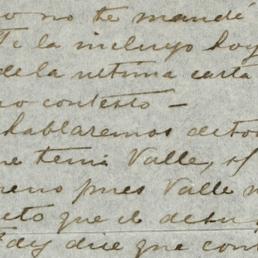 o no te mandé
Te la incluyo hoy
de la ultima carta
no contesto —
hablaremos de to
ue tenia Valle, si
eno pues Valle n
eto que el desu
Edy dice que con